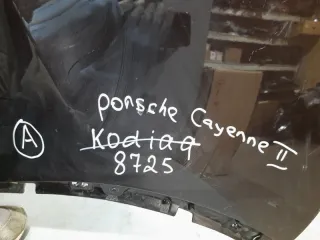 Porsche Cayenne II
A
Kodiaq
8725